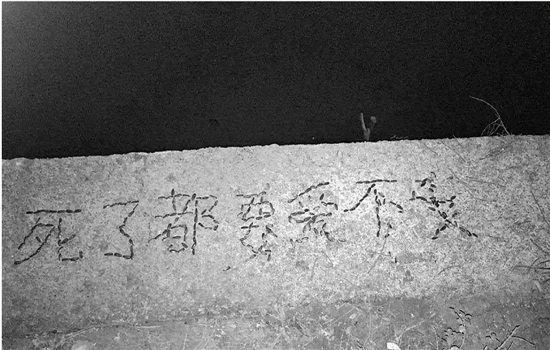 死了都要爱不